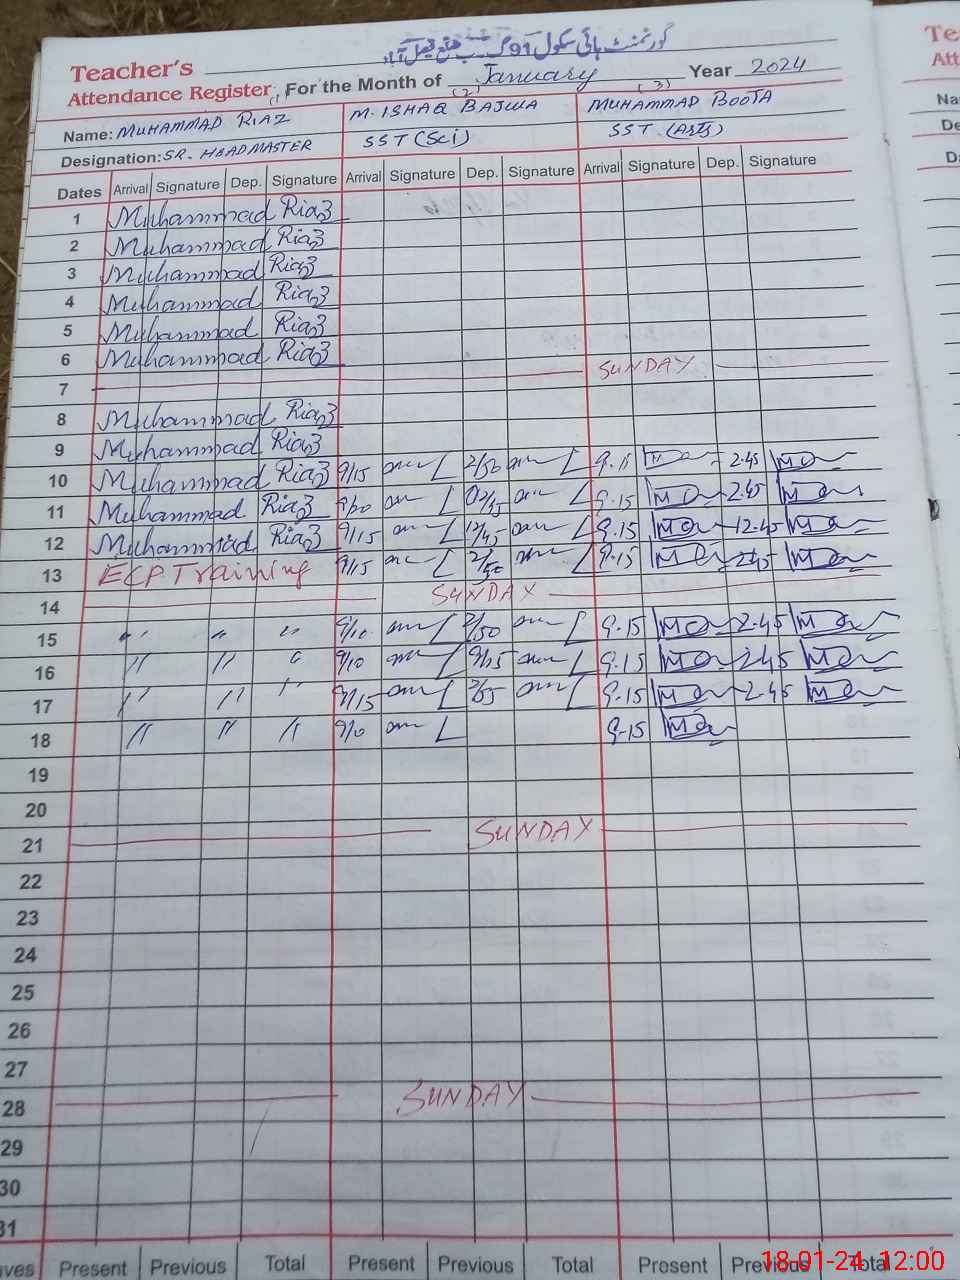 گورنمنٹ ہائی سکول 91 گ ب ضلع فیصل آباد
Teacher's
Attendance Register For the Month of January Year 2024
(1) (2) (3)
Name: MUHAMMAD RIAZ M. ISHAQ BAJWA MUHAMMAD BOOTA
Designation: SR. HEADMASTER SST (Sci) SST (Arts)
Dates Arrival Signature Dep. Signature Arrival Signature Dep. Signature Arrival Signature Dep. Signature
1 Muhammad Riaz
2 Muhammad Riaz
3 Muhammad Riaz
4 Muhammad Riaz
5 Muhammad Riaz
6 Muhammad Riaz
7 SUNDAY
8 Muhammad Riaz
9 Muhammad Riaz
10 Muhammad Riaz 9/15 2/50 9.15 2.45
11 Muhammad Riaz 9/20 9.15 2.45
12 Muhammad Riaz 9/15 12/45 9.15 12.45
13 ECP Training 9/15 2/50 9.15 2.45
14 SUNDAY
15 " " " 9/10 2/50 9.15 2.45
16 " " " 9/10 9.15 2.45
17 " " " 9/15 9.15 2.45
18 " " " 9/10 9.15
19
20
21 SUNDAY
22
23
24
25
26
27
28 SUNDAY
29
30
31
Present Previous Total Present Previous Total Present Previous Total
18-01-24 12:00